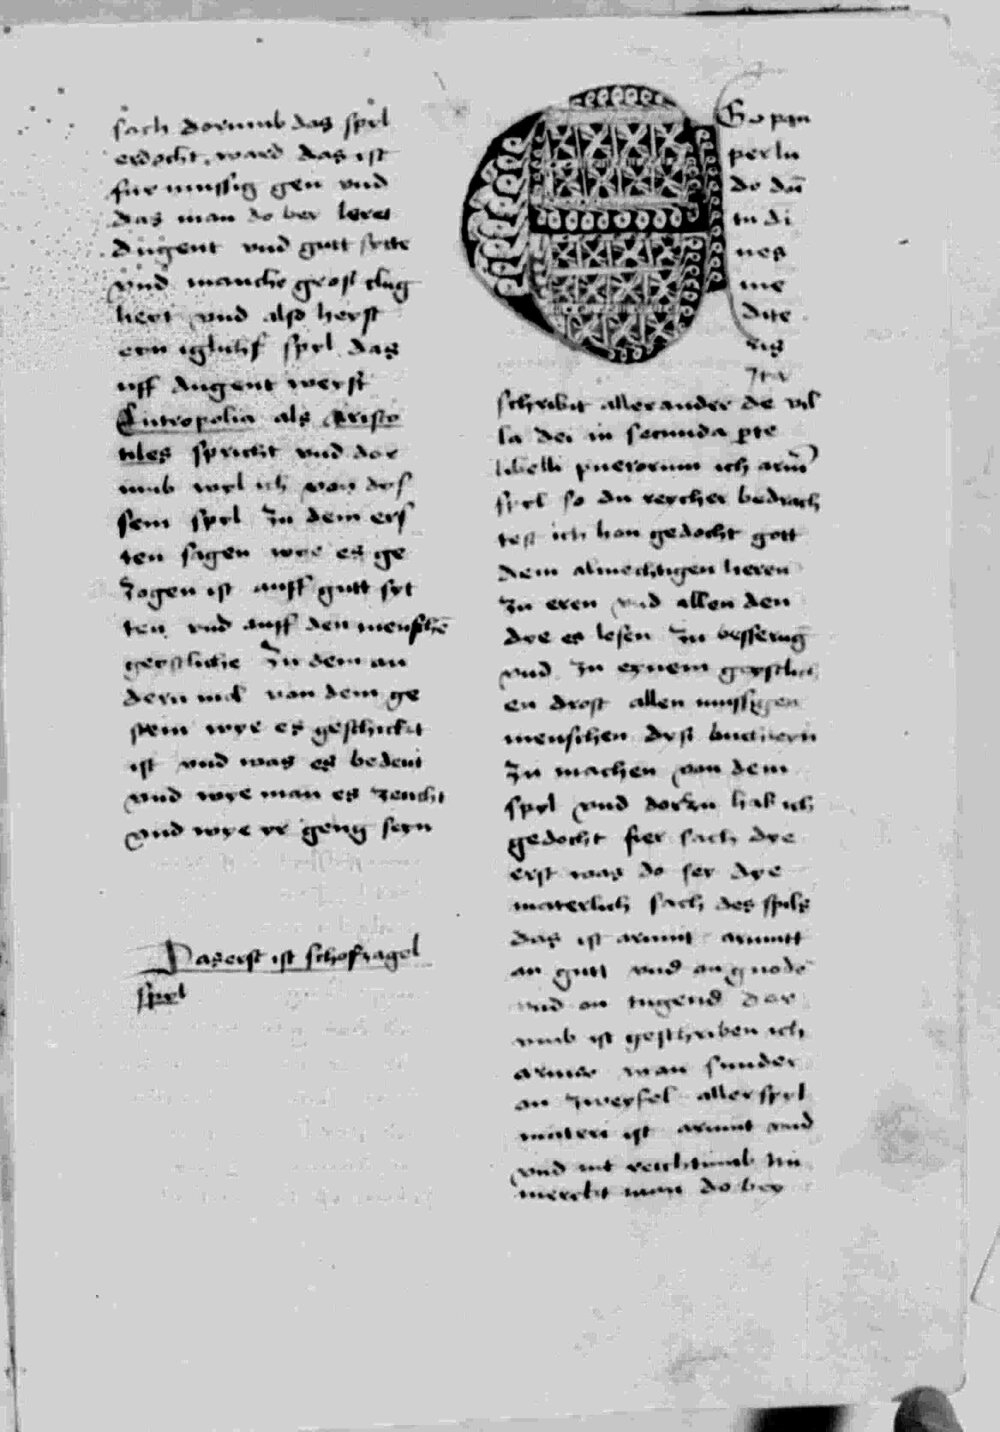 sach dorumb das spyl
erdocht ward das ist
fur mussig gen vnd
das man do bey leret
dugent vnd gutt sytte
vnd manche grosß clug
heyt vnd also heyst
eyn iglichß spyl das
uff dugent weyst
Eutropolia als Aristo
tiles spricht vnd dor
umb wyl ich von dys
sem spyl zu dem ers
ten sagen wye es ge
zogen ist auff gutt syt
ten vnd auff den mensche
geystliche zu dem an
dern mol von dem ge
stein wye es geschickt
ist vnd was es bedeut
vnd wye man es zeucht
vnd wye yr geng seyn
Das erst ist schofzagel
spyl
Ego pau
per lu
do dū
tu di
ues
me
dite
ris
Ita
schribit allexander de vil
la dei in secunda pte
libelli puerorum ich arm
spyl so du reycher bedrach
test ich han gedocht gott
dem almechtigen heren
zu eren vnd allen den
dye es lesen zu besserug
vnd zu eynem geystlich
en drost allen mussigen
menschen dyst buchlein
zu machen von dem
spyl vnd dorzu hab ich
gedocht fier sach dye
erst was do sey dye
materlich sach des spils
das ist armut armutt
an gutt vnd an gnode
vnd an tugend dor
vmb ist geschriben ich
armer wan sunder
an zweyfel aller spyl
materi ist armut vnd
vnd nit reichtumb nu
merckt man do bey